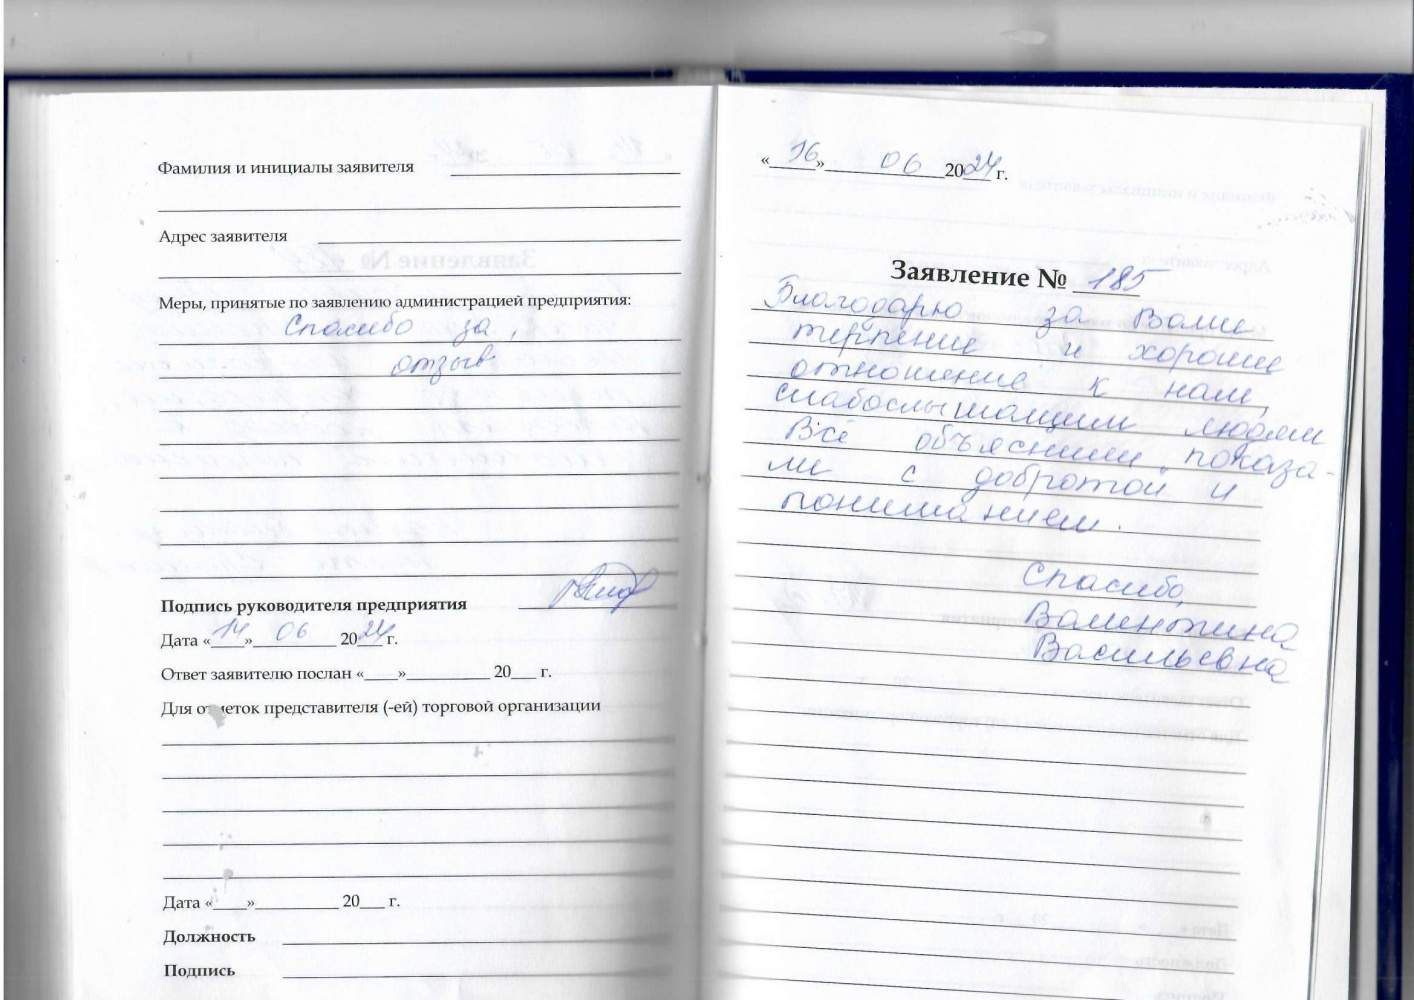 Фамилия и инициалы заявителя
Адрес заявителя
Меры, принятые по заявлению администрацией предприятия:
Спасибо за
отзыв
Подпись руководителя предприятия
Дата «14» 06 2024 г.
Ответ заявителю послан «____»__________ 20___ г.
Для отметок представителя (-ей) торговой организации
Дата «____»__________ 20___ г.
Должность
Подпись
«16» 06 2024 г.
Заявление № 185
Благодарю за Ваше
терпение и хорошее
отношение к нам,
слабослышащим людям
Всё объяснили, показа-
ли с добротой и
пониманием.
Спасибо,
Валентина
Васильевна